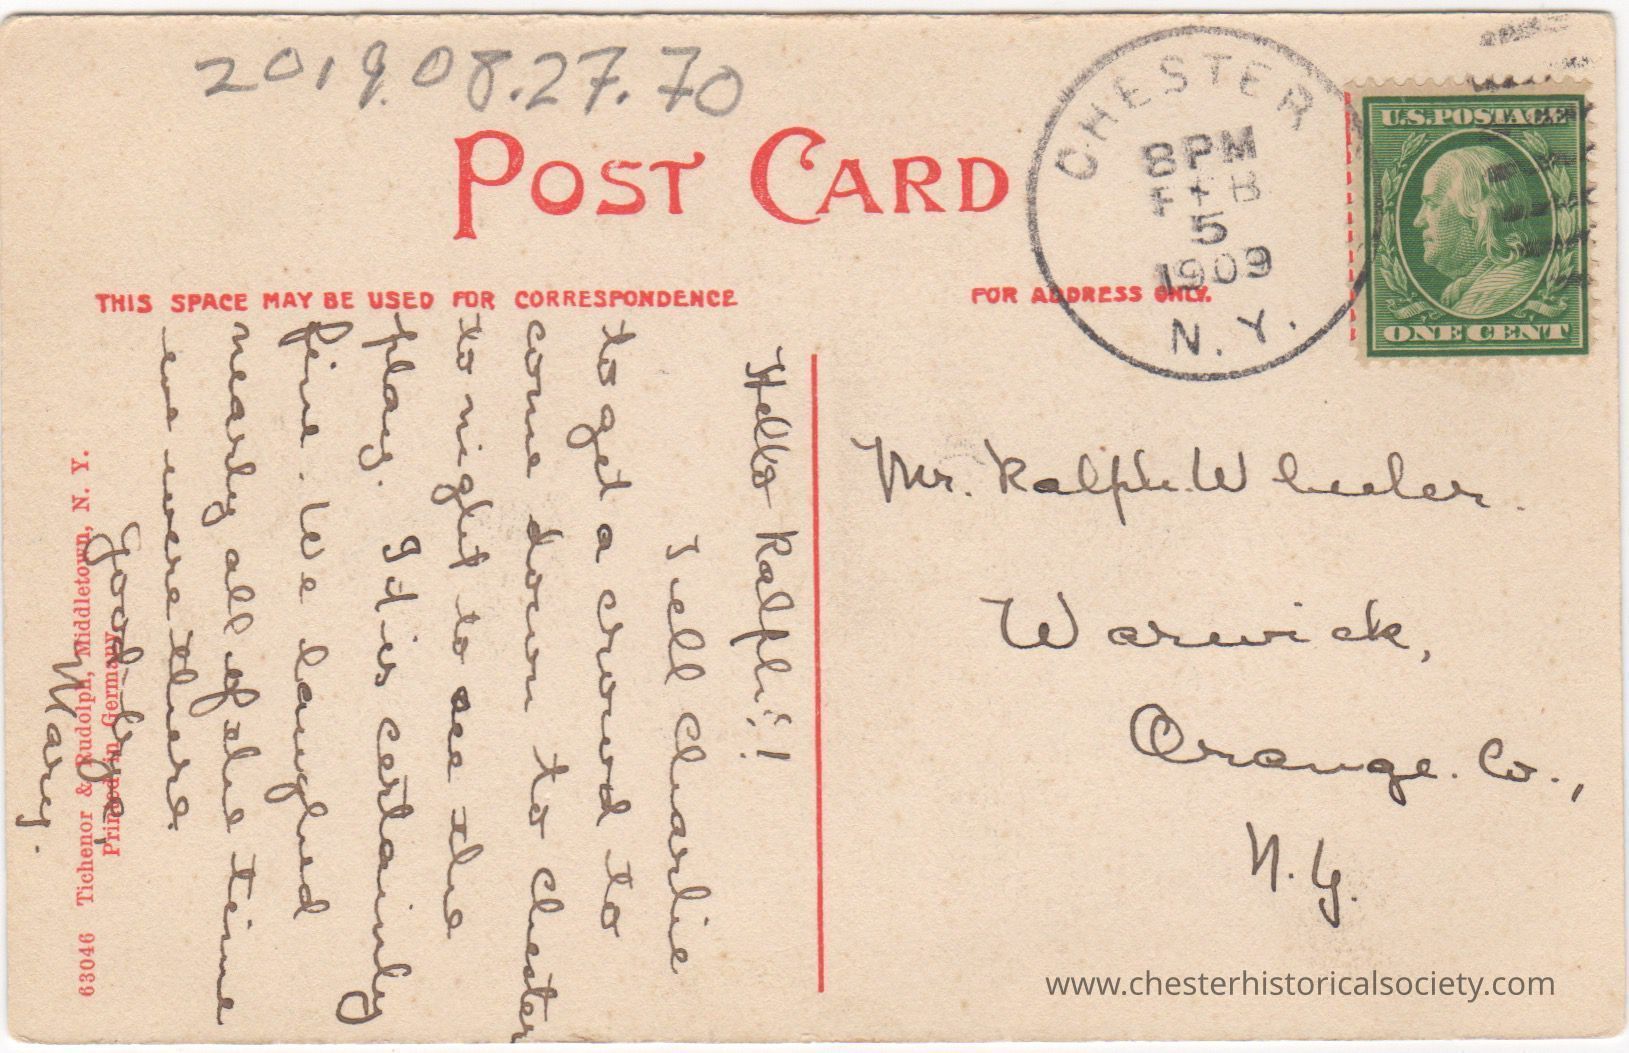 2019.08.27.70
POST CARD
CHESTER
8 PM
FEB
5
1909
N.Y.
U.S. POSTAGE
ONE CENT
THIS SPACE MAY BE USED FOR CORRESPONDENCE
FOR ADDRESS ONLY.
Hello Ralph!!!
Tell Charlie
to get a crowd to
come down to Chester
to night to see the
play. It is certainly
fine. We laughed
nearly all of the time
we were there.
Good-bye,
Mary.
Mr. Ralph Wheeler.
Warwick,
Orange. Co.,
N.Y.
63046 Tichenor & Rudolph, Middletown, N. Y.
Printed in Germany
www.chesterhistoricalsociety.com